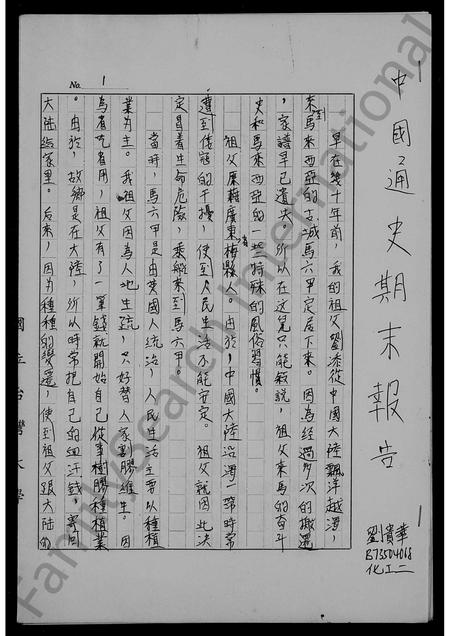 中國通史期末報告
劉貴華
B73504068
化工二
No. 1
早在幾十年前，我的祖父劉添從中國大陸飄洋越海，
來到馬來西亞的古城馬六甲定居下來。因為經過多次的搬遷
，家譜早已遺失。所以在這兒只能敘說，祖父來馬的奮斗
史和馬來西亞的一些特殊的風俗習慣。
祖父原籍廣東梅縣人。由於，中國大陸沿海一帶時常
遭到倭寇的干擾，使到人民生活不能安定。祖父就因此決
定冒着生命危險，乘船來到馬六甲。
當時，馬六甲是由英國人統治，人民生活主要以種植
業為主。我祖父因為人地生疏，只好替人家割膠維生。因
為省吃省用，祖父有了一筆錢就開始自己從事樹膠種植業
。由於，故鄉是在大陸，所以時常把自己的血汗錢，寄回
大陸給家里。后來，因為種種的變遷，使到祖父跟大陸的
國立台灣大學
FamilySearch International